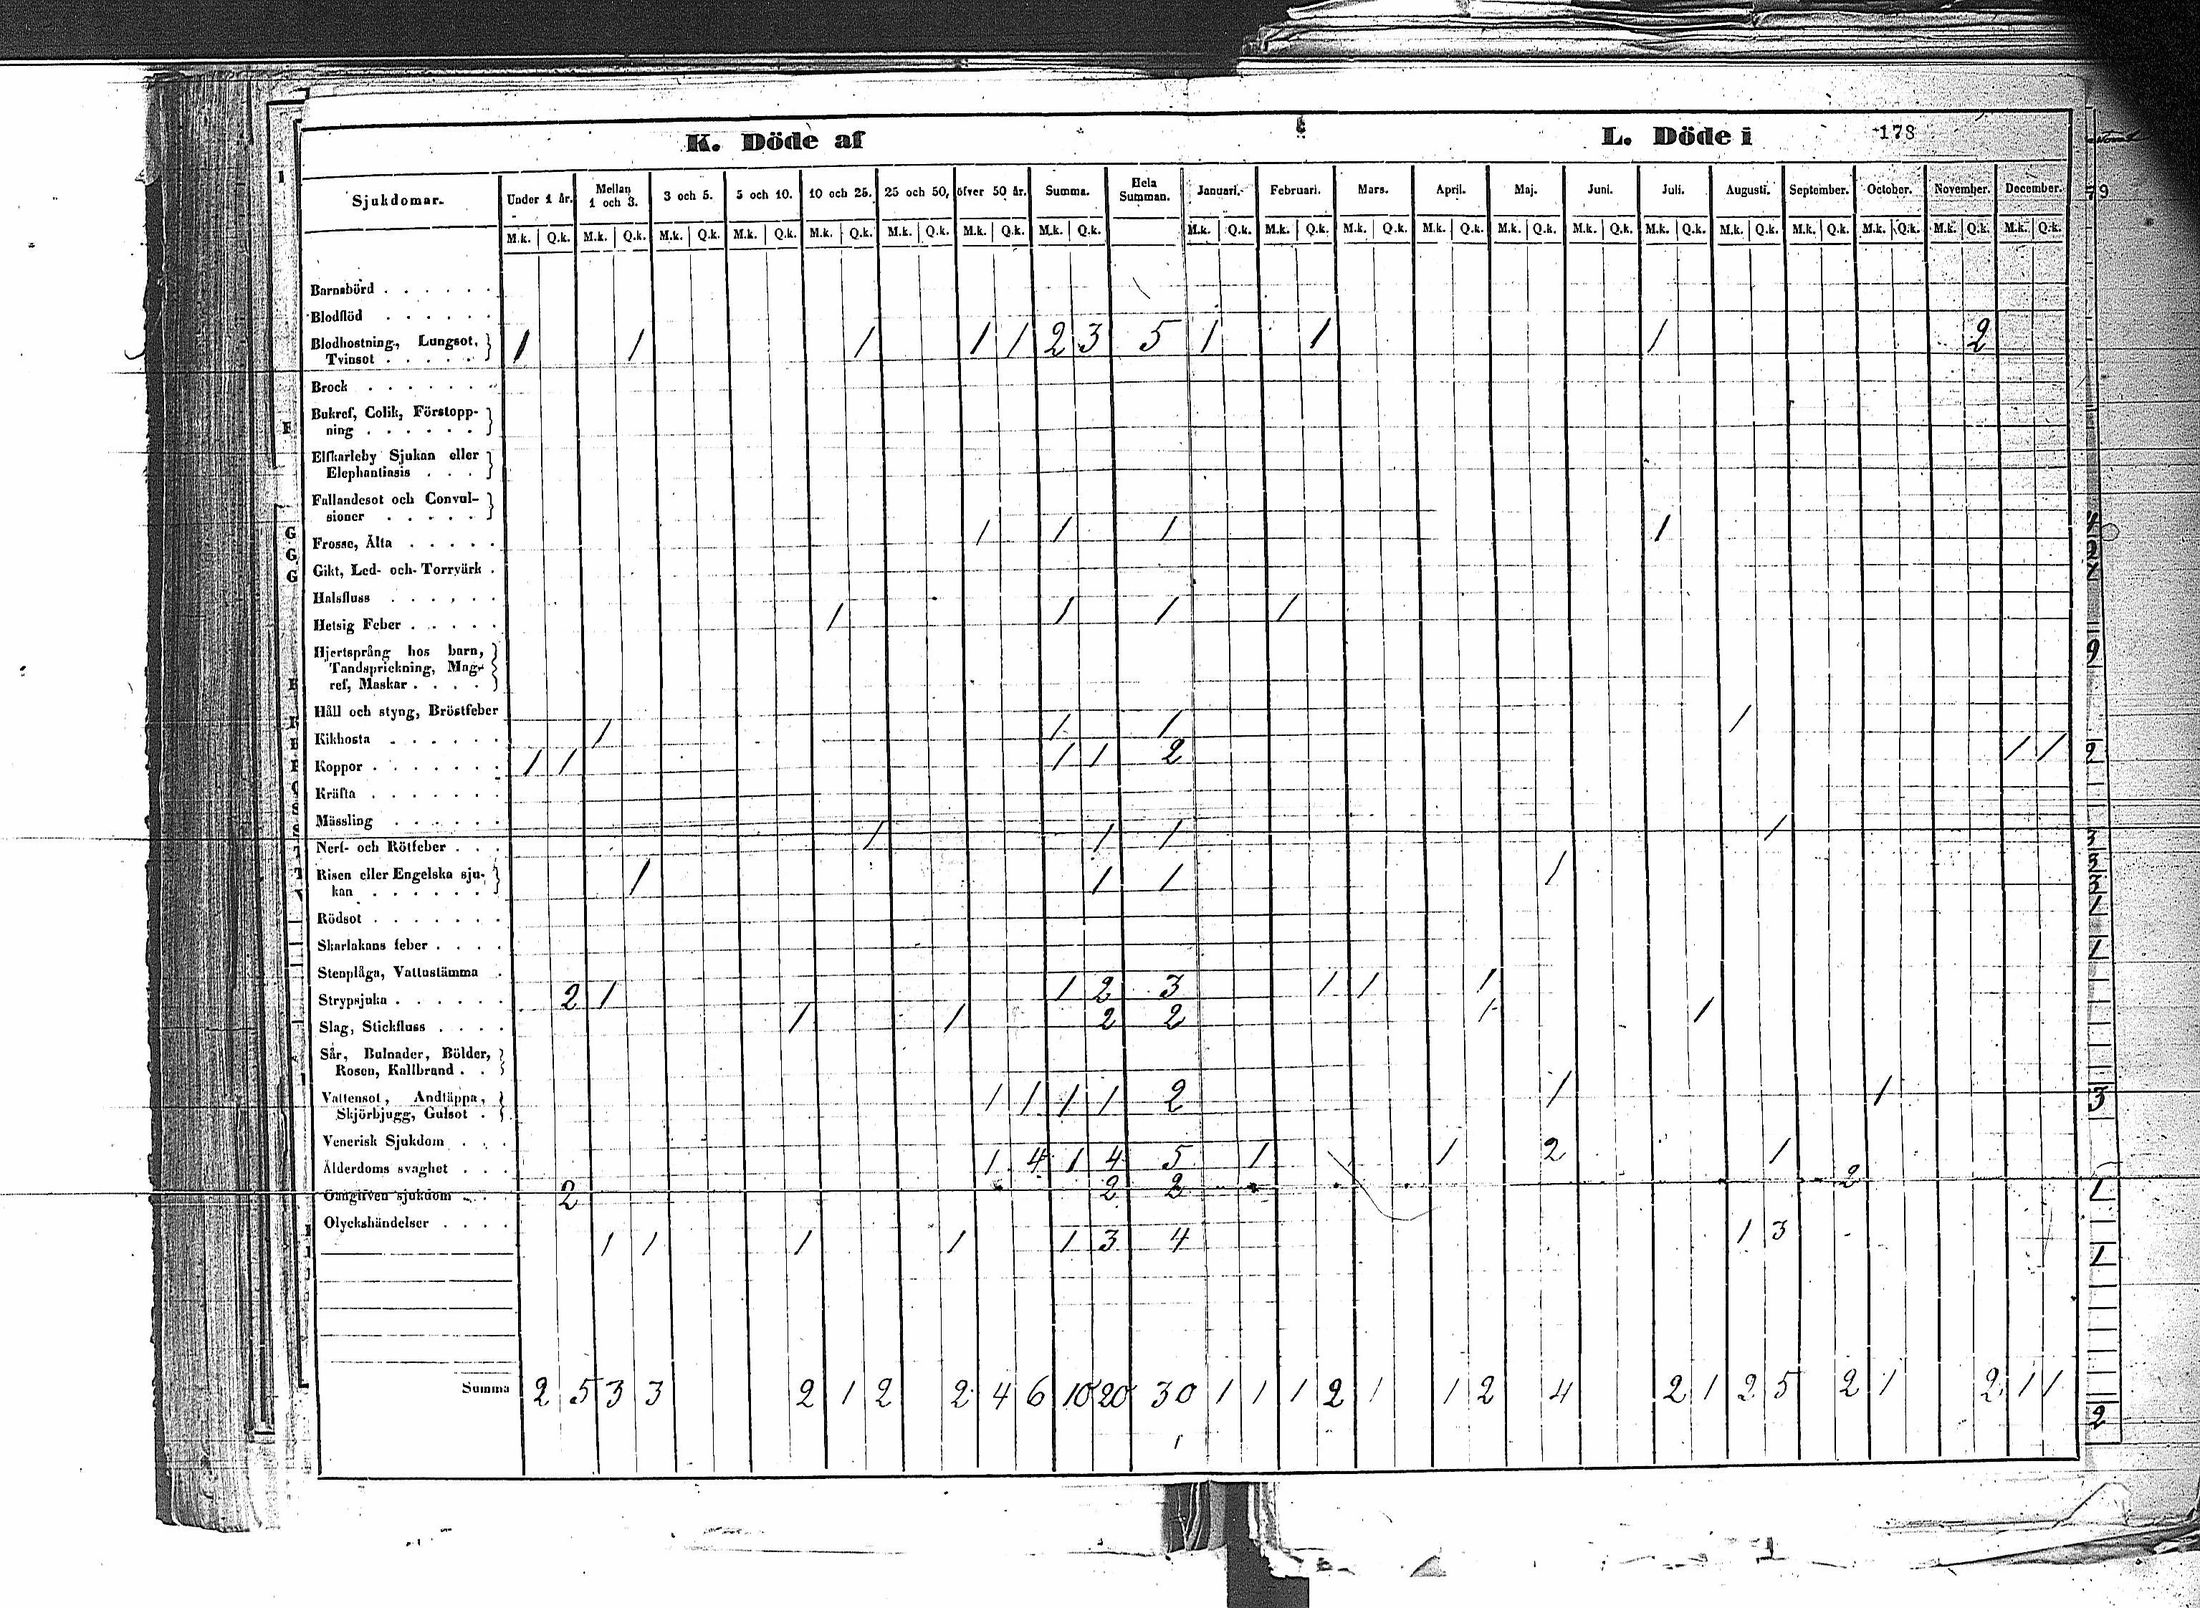 K. Döde af
L. Döde i
178
Sjukdomar.
Under 1 år. Mellan 1 och 3. 3 och 5. 5 och 10. 10 och 25. 25 och 50. öfver 50 år. Summa. Hela Summan. Januari. Februari. Mars. April. Maj. Juni. Juli. Augusti. September. October. November. December.
M.k. Q.k. M.k. Q.k. M.k. Q.k. M.k. Q.k. M.k. Q.k. M.k. Q.k. M.k. Q.k. M.k. Q.k. M.k. Q.k. M.k. Q.k. M.k. Q.k. M.k. Q.k. M.k. Q.k. M.k. Q.k. M.k. Q.k. M.k. Q.k. M.k. Q.k. M.k. Q.k. M.k. Q.k. M.k. Q.k.
Barnsbörd
Blodflöd
Blodhostning, Lungsot,
Tvinsot 1 1 1 1 1 2 3 5 1 1 1 2
Brock
Bukref, Colik, Förstopp-
ning
Elfkarleby Sjukan eller
Elephantiasis
Fallandesot och Convul-
sioner
Frossa, Älta 1 1 1 1
Gikt, Led- och Torrvärk
Halsfluss
Hetsig Feber 1 1 1 1
Hjertsprång hos barn,
Tandsprickning, Mag-
ref, Maskar
Håll och styng, Bröstfeber
Kikhosta 1 1 1 1
Koppor 1 1 1 1 2 1 1
Kräfta
Mässling
Nerf- och Rötfeber 1 1 1 1
Risen eller Engelska sju-
kan 1 1 1 1
Rödsot
Skarlakans feber
Stenplåga, Vattustämma
Strypsjuka 2 1 1 2 3 1 1 1
Slag, Stickfluss 1 1 2 2 1 1
Sår, Bulnader, Bölder,
Rosen, Kallbrand
Vattensot, Andtäppa,
Skjörbjugg, Gulsot 1 1 1 1 2 1 1
Venerisk Sjukdom
Ålderdoms svaghet 1 4 1 4 5 1 1 2 1
Oangifven sjukdom 2 2 2 2
Olyckshändelser 1 1 1 1 1 3 4 1 3
Summa 2 5 3 3 2 1 2 2 4 6 10 20 30 1 1 1 2 1 1 2 4 2 1 2 5 2 1 2 1 1